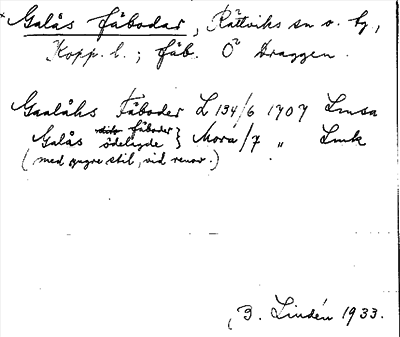 Galås fäbodar, Rättviks sn o. hg,
Kopp. l.; fäb. O Draggen.
Gaalåhs Fäboder L 134/6 1707 Lmsa
Galås dito fäboder ödelagde } Mora/7 " Lmk
(med yngre stil, vid renov.)
B. Lindén 1933.